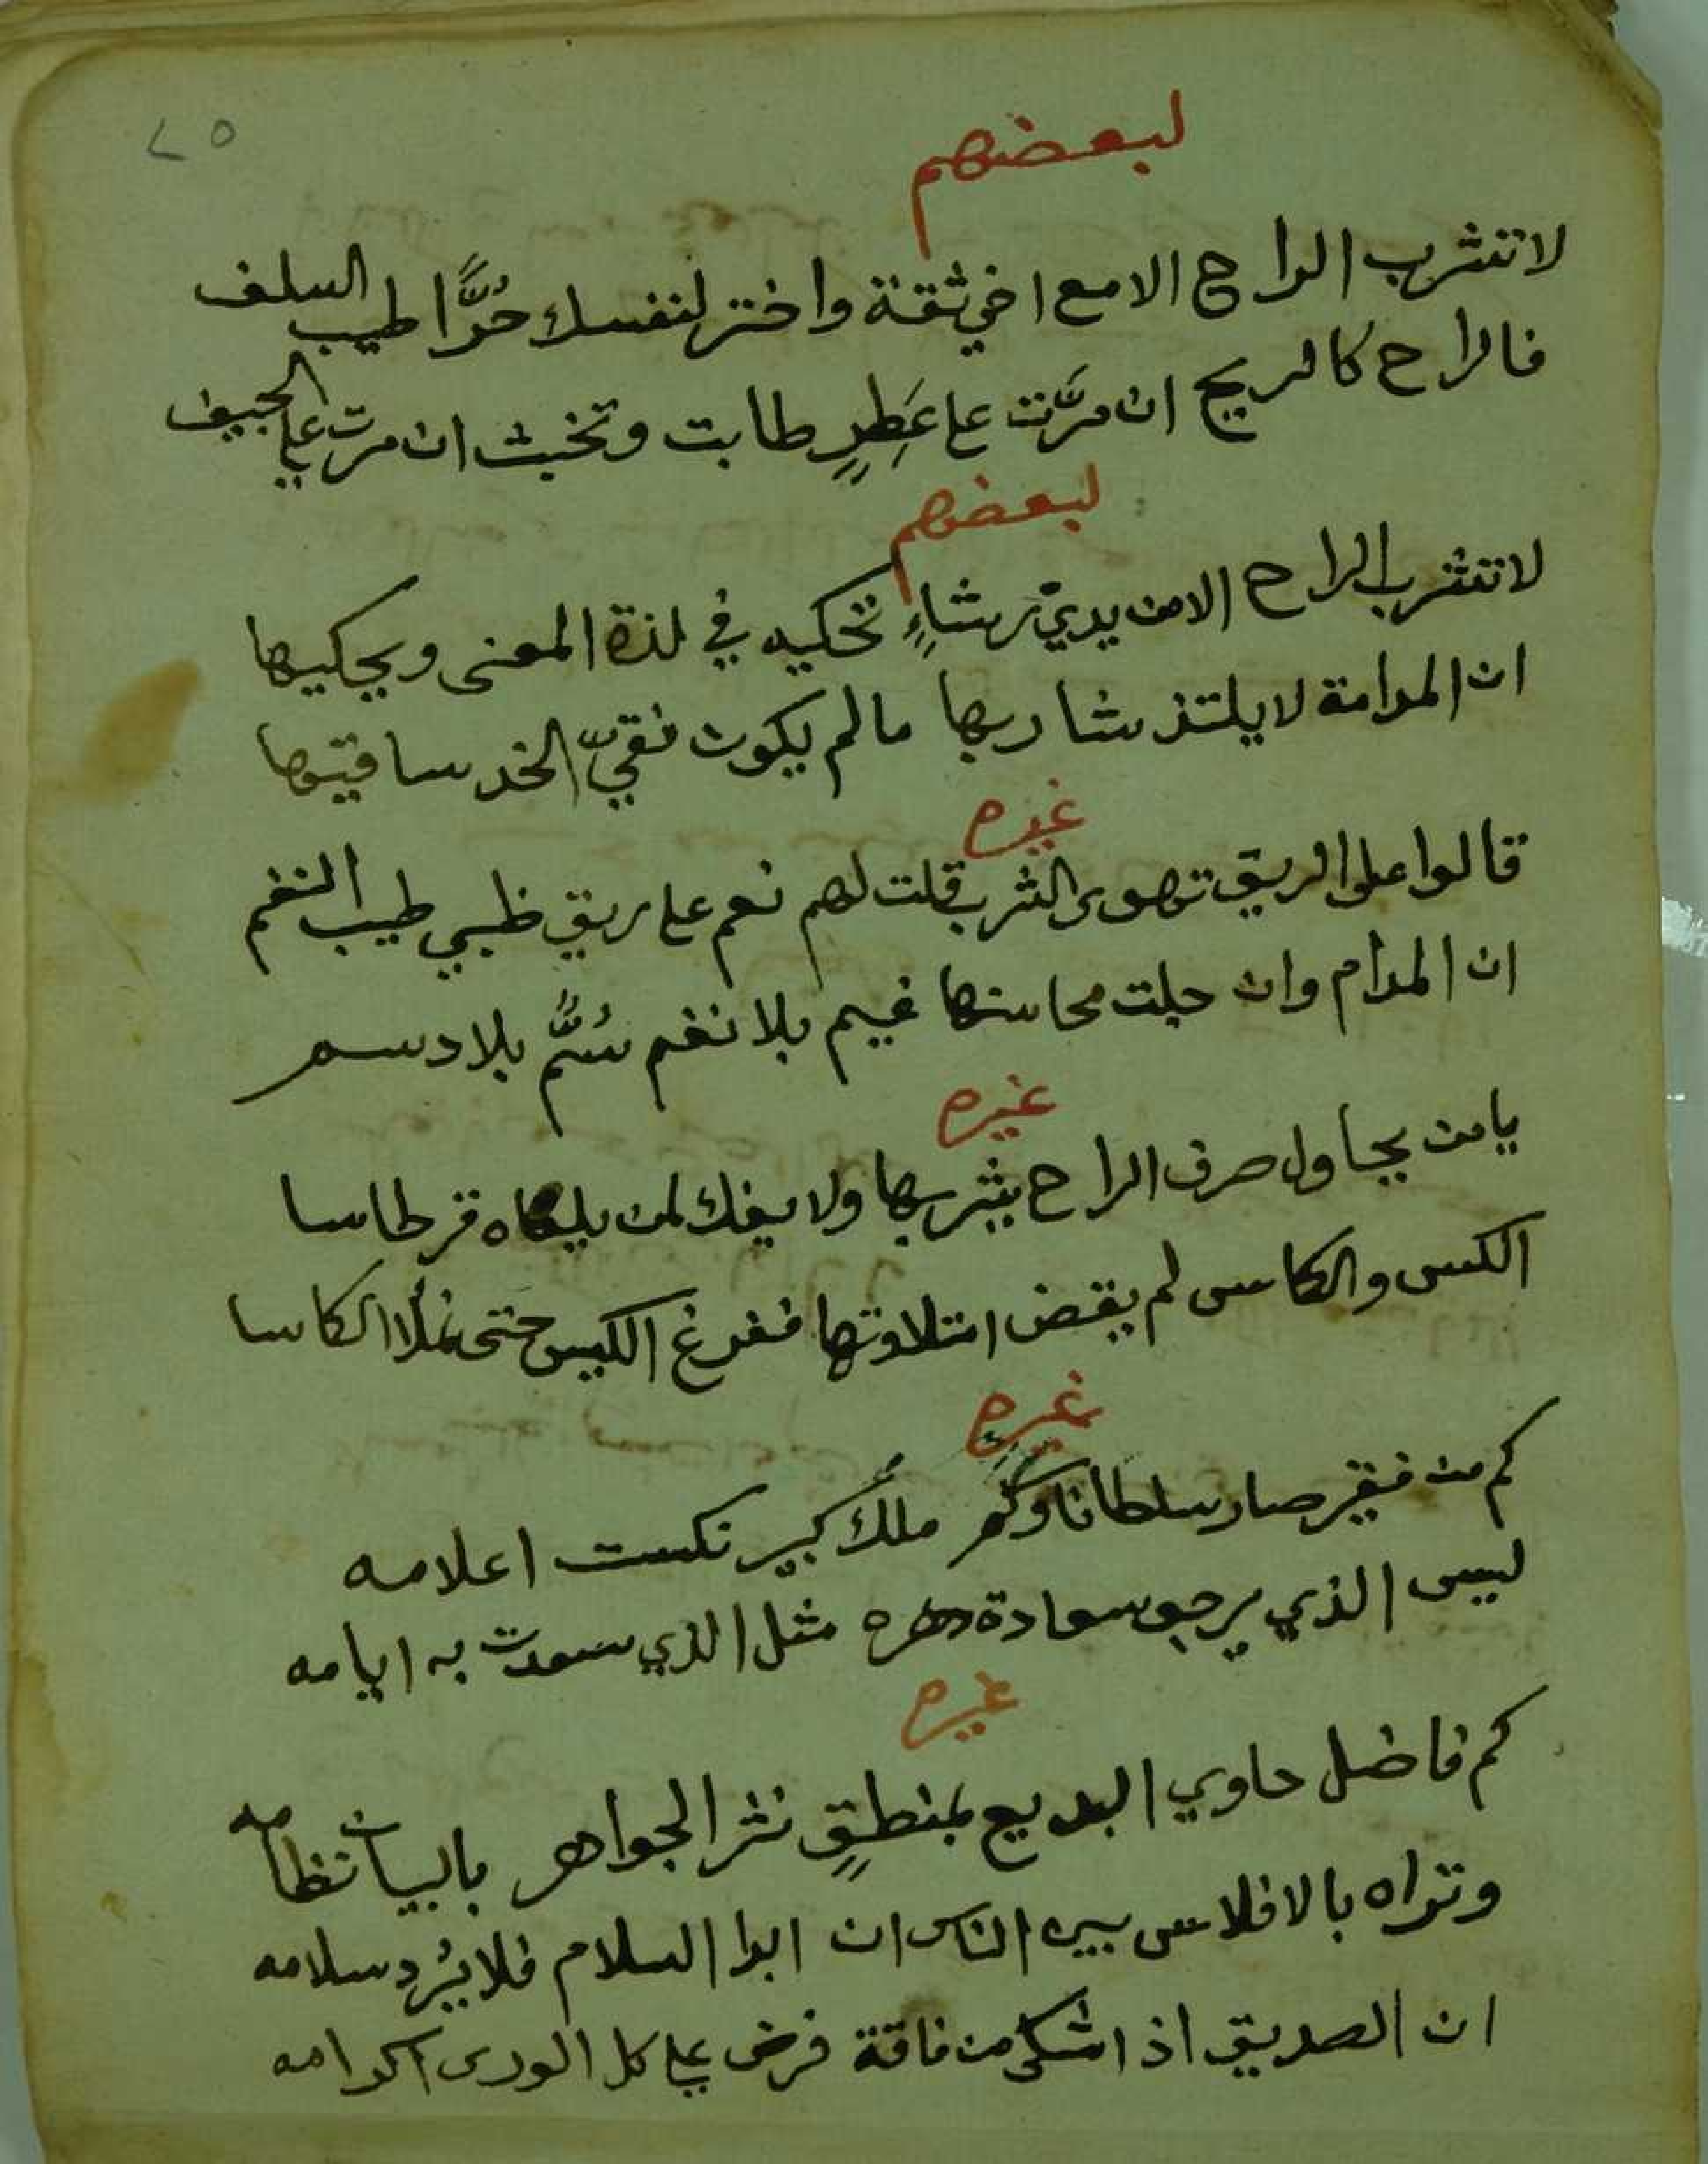 ٢٥
لبعضهم
لا تشرب الراح الا مع اخي ثقة واختر لنفسك حُرًّا طيب السلف
فالراح كالريح ان مرَّت على عَطِرٍ طابت وتخبث ان مرت على الجيف
لبعضهم
لا تشرب الراح الا من يدي رشاءٍ تحكيه في لذة المعنى ويحكيها
ان المدامة لا يلتذ شاربها ما لم يكون نقيّ الخد ساقيها
غيره
قالوا على الريق تهوى الشرب قلت لهم نعم على ريق ظبي طيب النغم
ان المدام وان جلت محاسنها غيم بلا نغم سُمٌّ بلا دسم
غيره
يا من يحاول صرف الراح يشربها ولا يفك لمن يلقاه قرطاسا
الكس والكاس لم يقض امتلاوتها ففرغ الكيس حتى تملأ الكاسا
غيره
كم من فقير صار سلطانا وكم ملك كبير نكست اعلامه
ليس الذي يرجو سعادة دهره مثل الذي سعدت به ايامه
غيره
كم فاضل حاوي البديع بمنطقٍ نثر الجواهر بالبيان نظامه
وتراه بالافلاس بين الناس ان ابدا السلام فلا يُرد سلامه
ان الصديق اذ اشتكى من فاقة فرض على كل الورى اكرامه